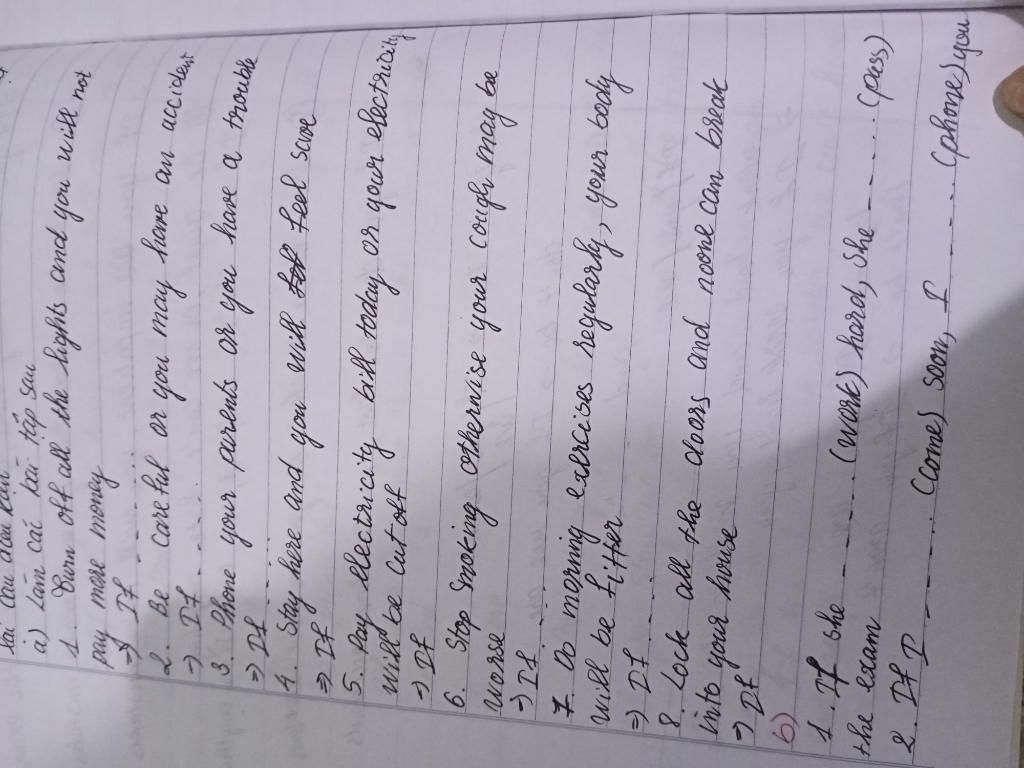 a) Làm các bài tập sau
1. Turn off all the lights and you will not
pay more money
=> If - - - - .
2. Be careful or you may have an accident
=> If - - - - - .
3. Phone your parents or you have a trouble
=> If - - - .
4. Stay here and you will feel
=> If
5. Pay electricity bill today or your electricity
will be cut off
=> If
6. Stop smoking otherwise your cough may be
worse
=> If ...
7. Do morning exercises regularly, your body
will be fitter
=> If ....
8. Lock all the doors and noone can break
into your house
=> If
b)
1. If she - - - - .... (work) hard, she - - - - .... (pass)
the exam
2. If I - - - - ... (come) soon, I ........ (phone) you